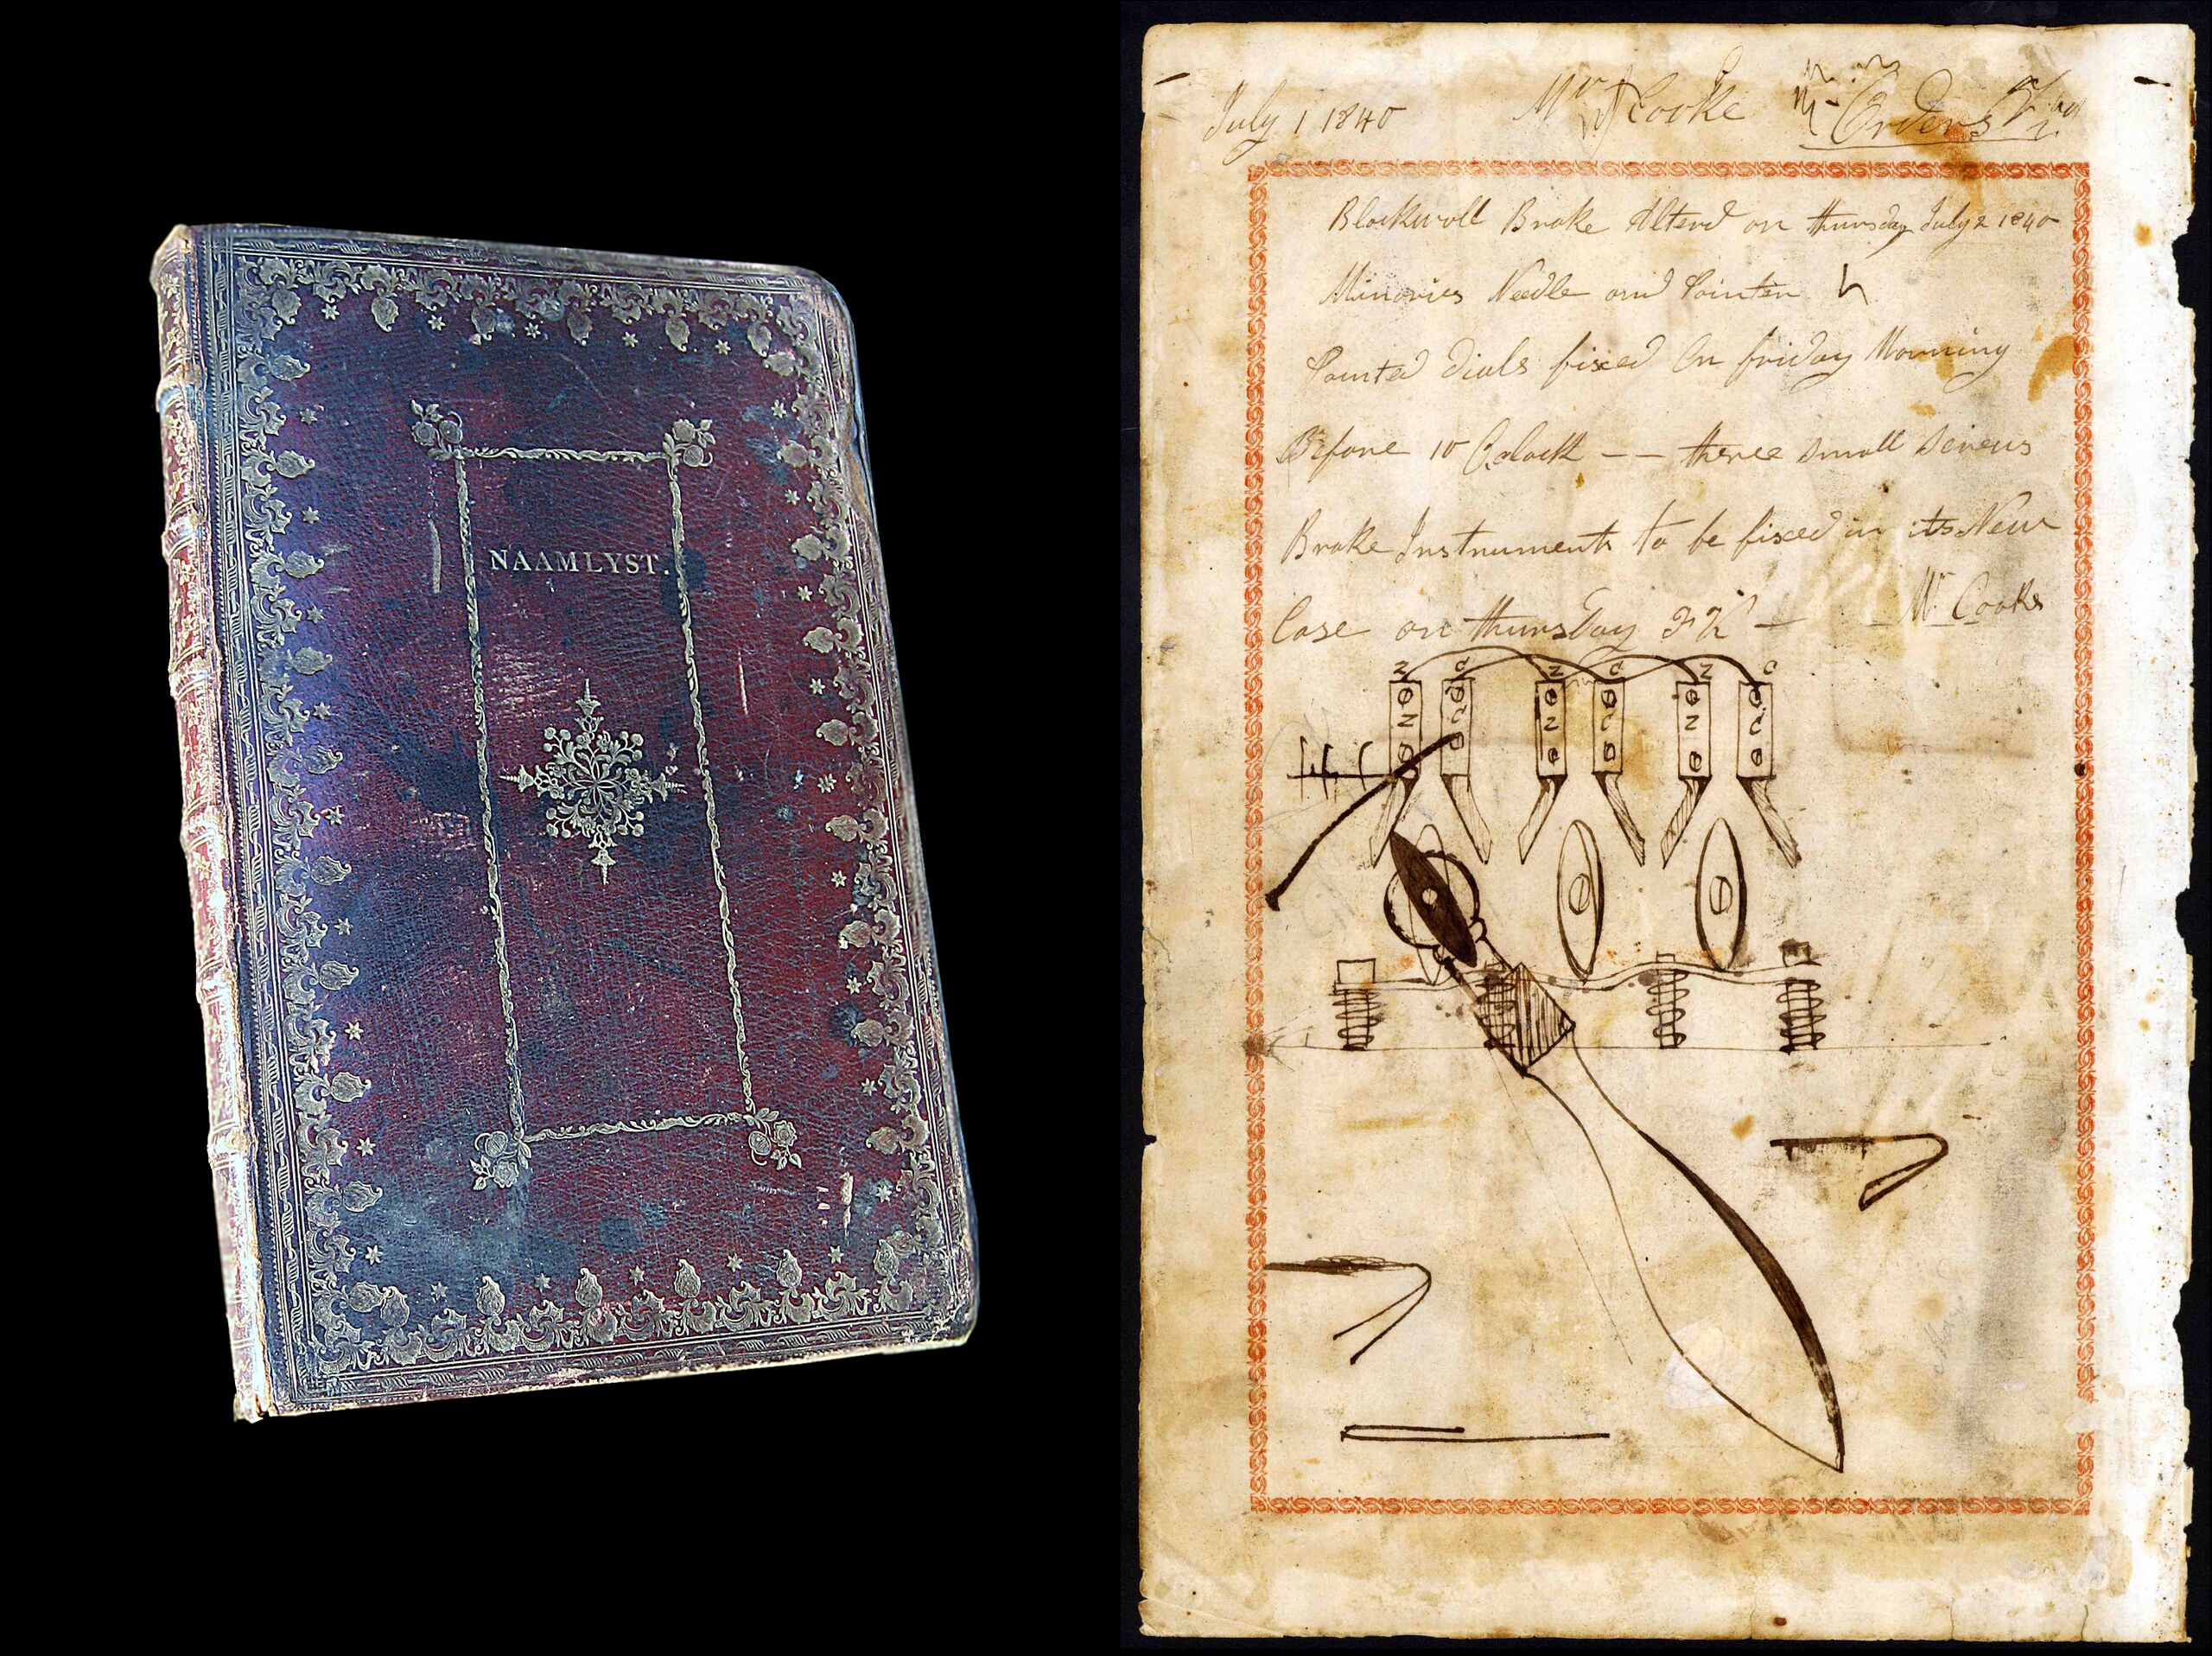 NAAMLYST.
July 1 1840 Mr Cooke Orders
Blackwall Brake Alterd on thursday July 2 1840
Minories Needle and Pointer
Painted dials fixed On friday Morning
Before 10 Oclock -- three small
Brake Instruments to be fixed in its New
Case on thursday
Mr Cooke
Z C Z C Z C
Z C Z C Z C